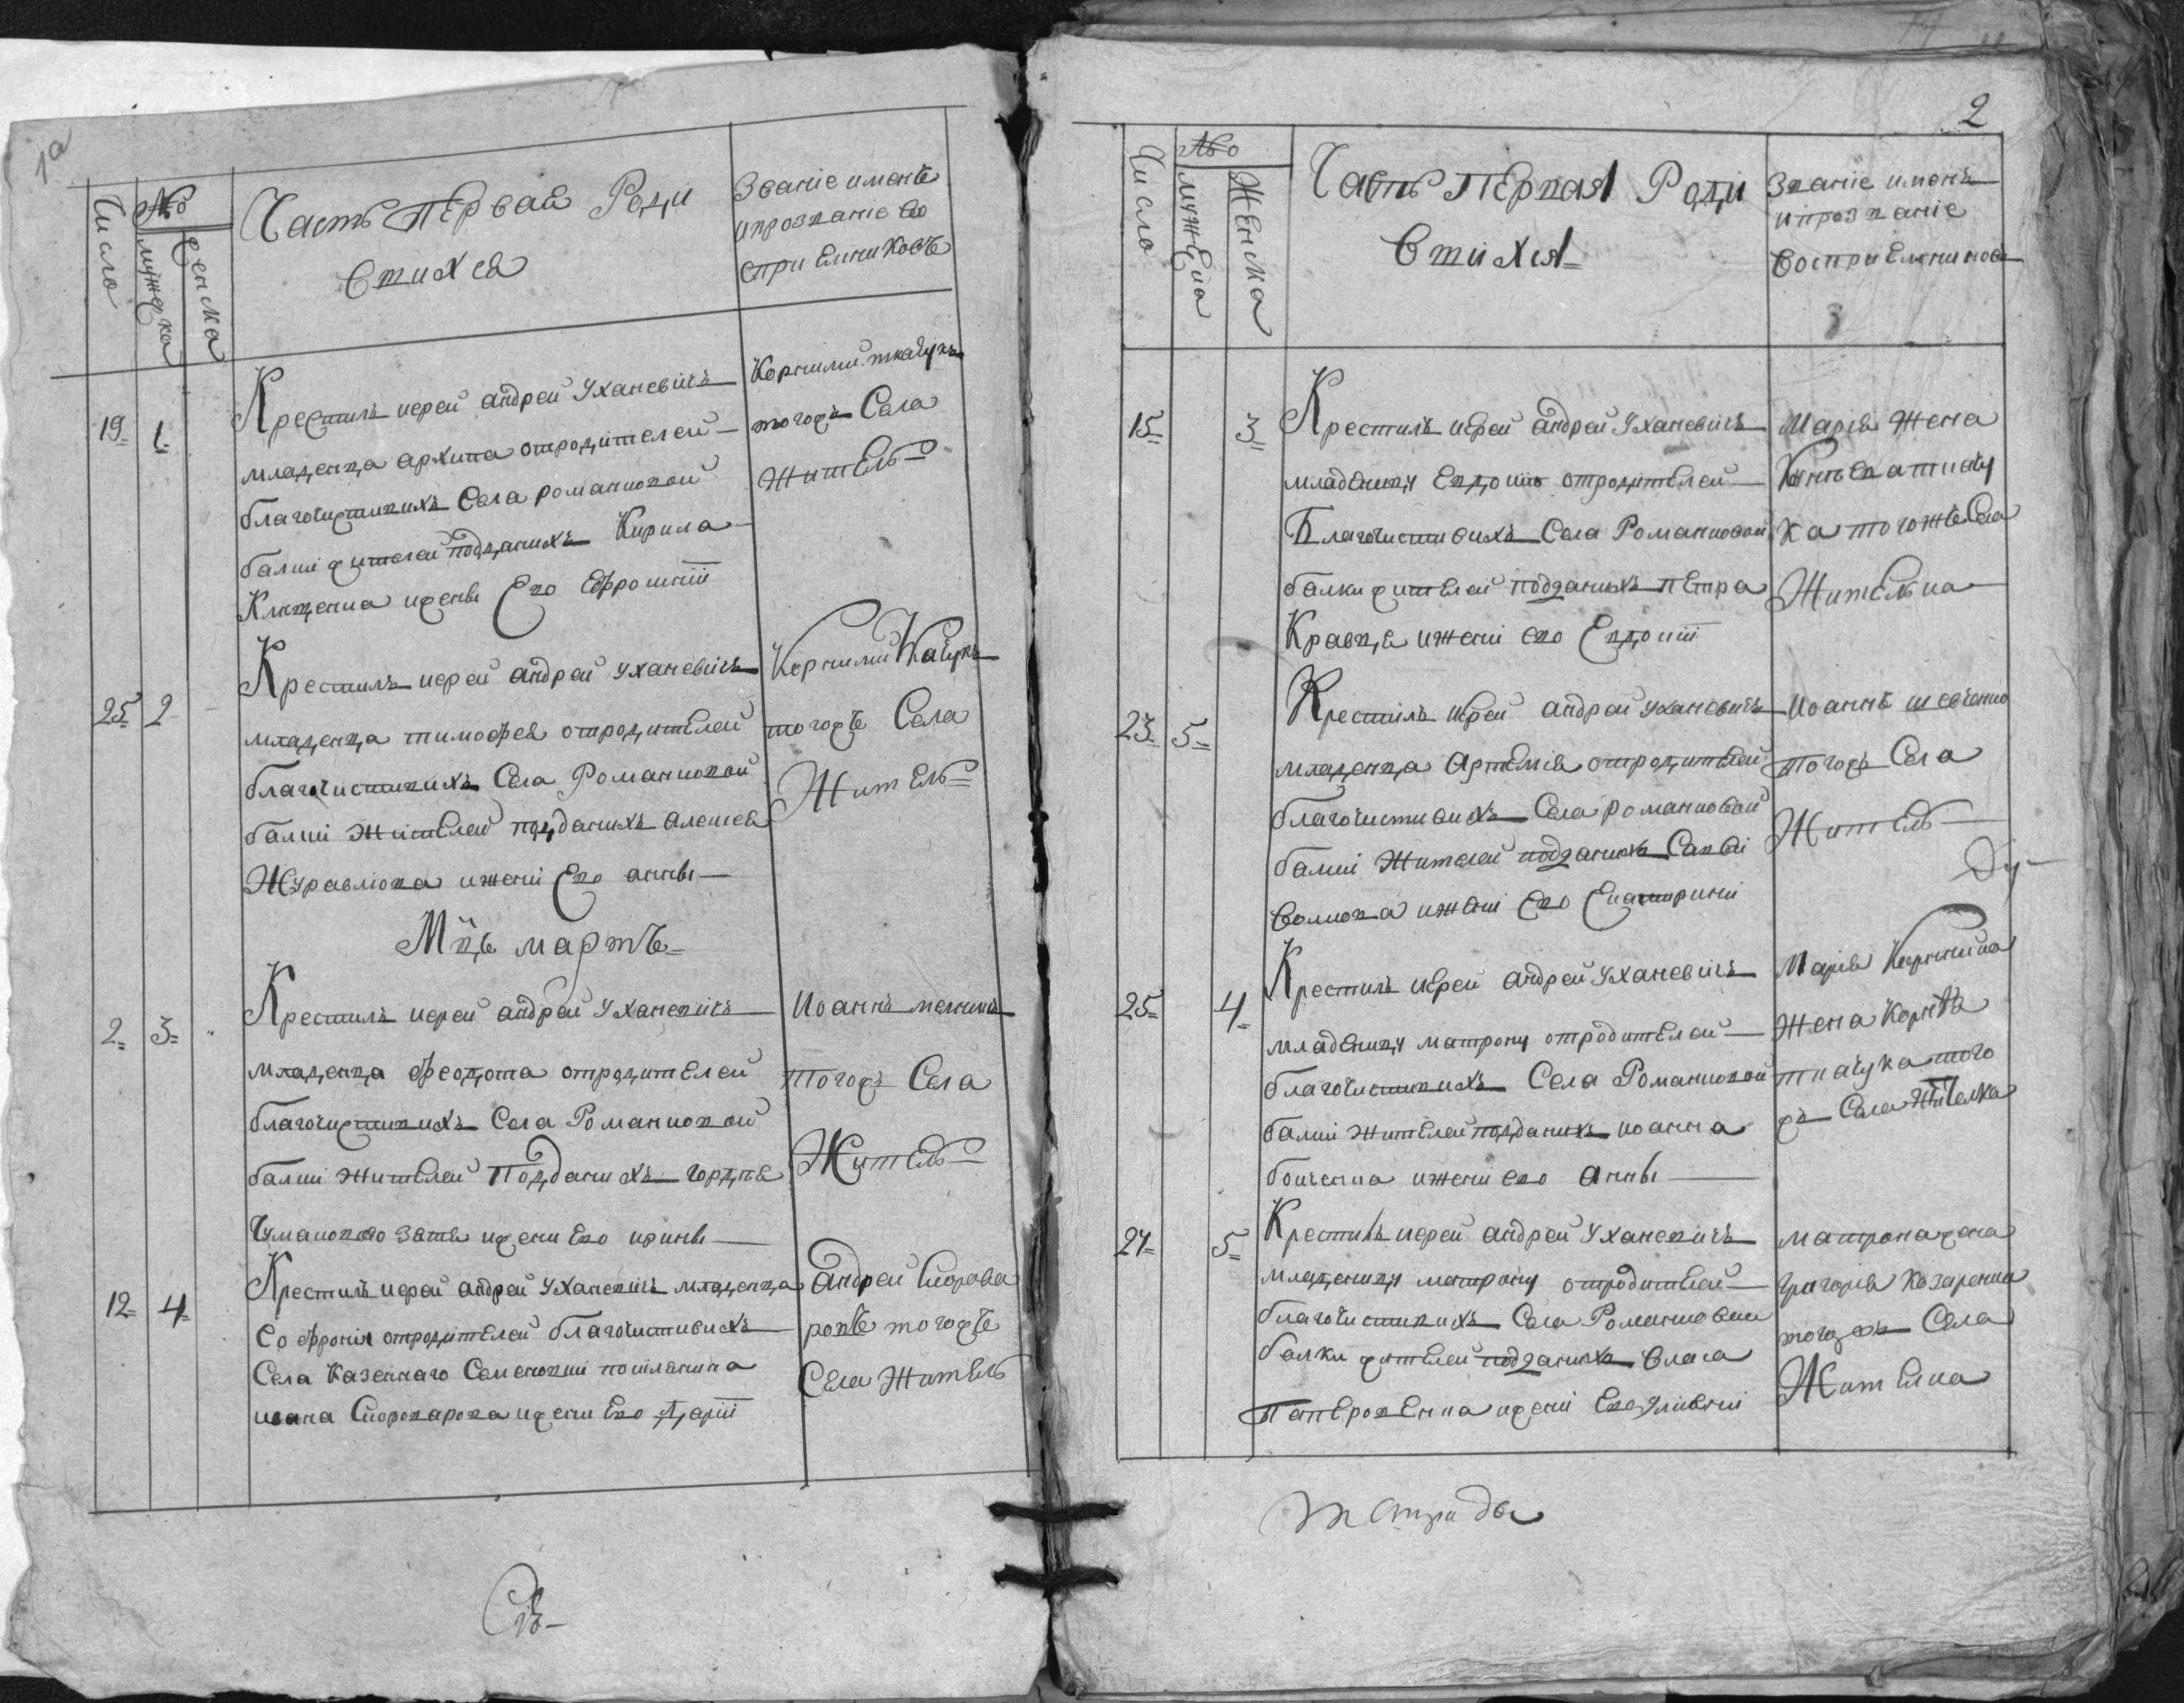 1а
Число
№
мужеска
женска
Часть Первая Роди
вшихся
Званіе именъ
ипрозваніе во
сприемниковъ
19
1
Крестилъ иерей андрей Уханевичъ
младенца архипа отродителей
благочистивихъ Села романковой
балки жителей подданихъ Кирила
ижени Его Ефросинії
Корнилий ткачукъ
тогожъ Села
Житель
25
2
Крестилъ иерей андрей уханевичъ
младенца тимофея отродителей
благочистивихъ Села Романковой
балки жителей подданихъ алексея
Журавлюва ижени Его анны
Корнилий Ткачукъ
тогожъ Села
Житель
Мцъ мартъ
2
3
Крестилъ иерей андрей Уханевичъ
младенца феодота отродителей
благочистивихъ Села Романковой
балки жителей Подданихъ гордѣя
зятя ижени Его ирины
Иоаннъ мелникъ
Тогожъ Села
Житель
12
4
Крестилъ иерей андрей Уханевичъ младенца
Софронія отродителей благочистивихъ
Села Казеннаго Семеновки поселянина
ивана Скороварова ижени Его Дарії
андрей Скорова
ровъ тогожъ
Села Житель
Св
2
Число
№
мужеска
Женска
Часть Первая Роди
вшихся
Званіе именъ
ипрозваніе
восприемниковъ
15
3
Крестилъ иерей андрей Уханевичъ
младеницу Евдокию отродителей
Благочистивихъ Села Романковой
балки жителей подданихъ петра
Кравця ижени его Евдокії
Марія Жена
ткачу
ка тогожъ Села
Жителька
23
5
Крестилъ иерей андрей уханевичъ
младенца Артемія отродителей
благочистивихъ Села романковой
балки Жителей подданихъ Савви
Волкова ижени Его Екатерини
Иоаннъ шевченко
тогожъ Села
Житель
25
4
Крестилъ иерей андрей Уханевичъ
младеницу матрону отродителей
благочистивихъ Села Романковой
балки жителей подданихъ иоанна
бойченка ижени его анны
Марія
жена Корнѣя
ткачука того
жъ Села Жителка
27
5
Крестилъ иерей андрей Уханевичъ
младеницу матрону отродителей
благочистивихъ Села Романковой
балки жителей подданихъ власа
ижени Его Уліянії
матрона жена
григорія Козаренка
тогожъ Села
Жителка